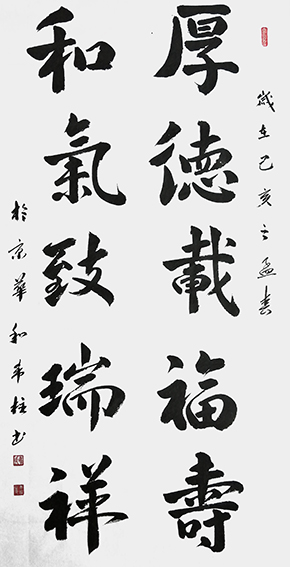 歲在己亥之孟春
厚德載福壽
和氣致瑞祥
於京華和希柱書